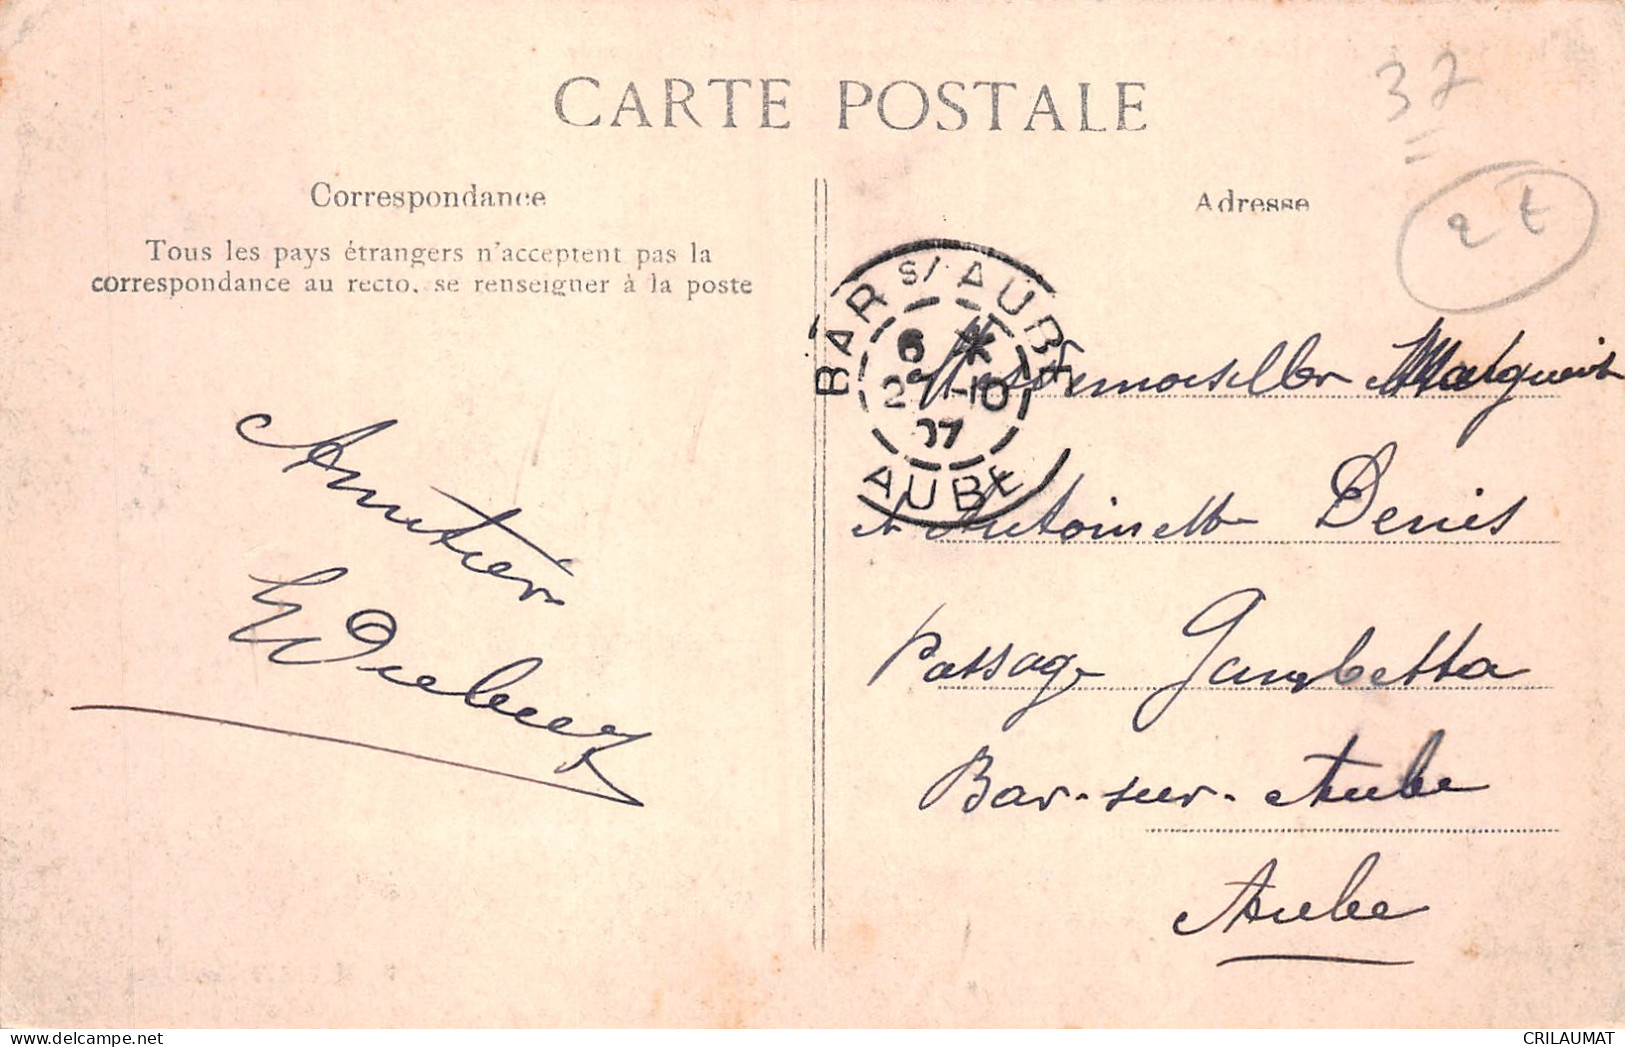 CARTE POSTALE
37
Correspondance
Tous les pays étrangers n'acceptent pas la
correspondance au recto, se renseigner à la poste
Adresse
2 t
BAR S/ AUBE
6 *
2 -10
07
AUBE
Mesdemoiselles Marguerite
et Antoinette Denis
Passage Gambetta
Bar-sur-Aube
Aube
CRILAUMAT